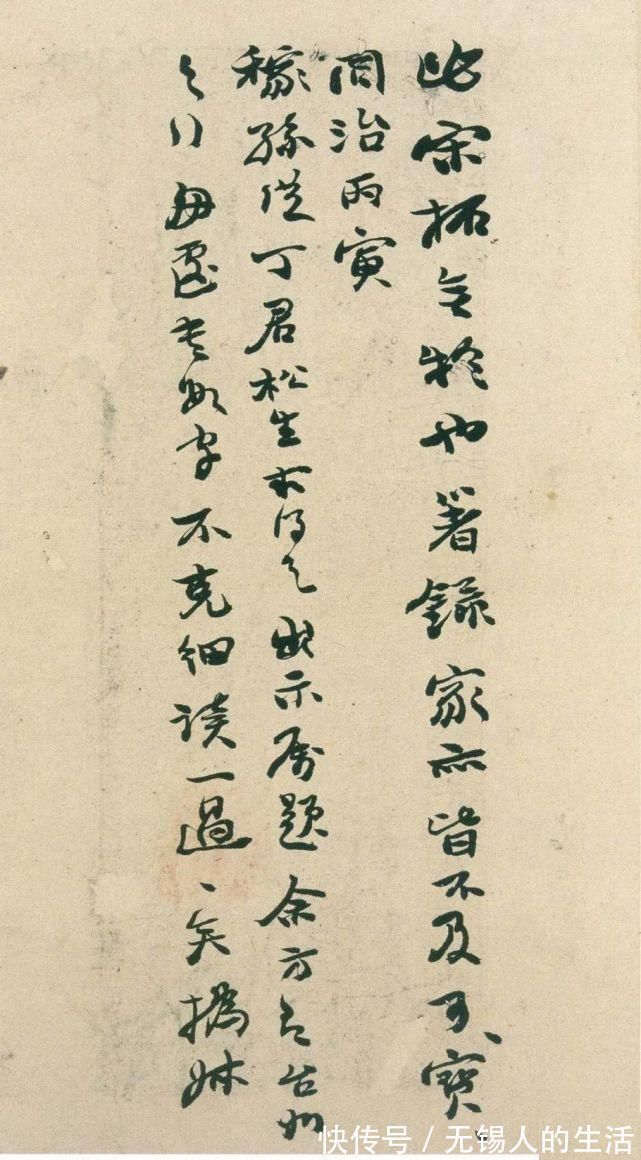 此宋拓也著錄家亦皆不及可寶
同治丙寅
稼孫從丁君松生得之出示屬題余方有台州
之行遽書數字不克細讀一過矣撝叔
快传号/无锡人的生活